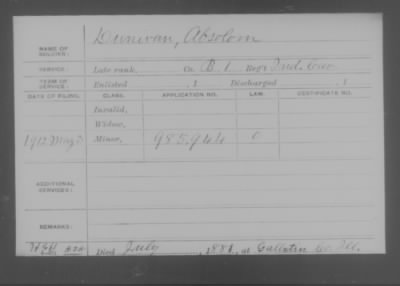 NAME OF SOLDIER: Dunivan, Absolom
SERVICE: Late rank, Co. B. 1 Reg't Ind. Cav.
TERM OF SERVICE: Enlisted , 1 Discharged , 1
DATE OF FILING. CLASS. APPLICATION NO. LAW. CERTIFICATE NO.
Invalid,
Widow,
1912 May Minor, 985,944
ADDITIONAL SERVICES:
REMARKS:
Died July , 1881, at Gallatin Co. Ill.